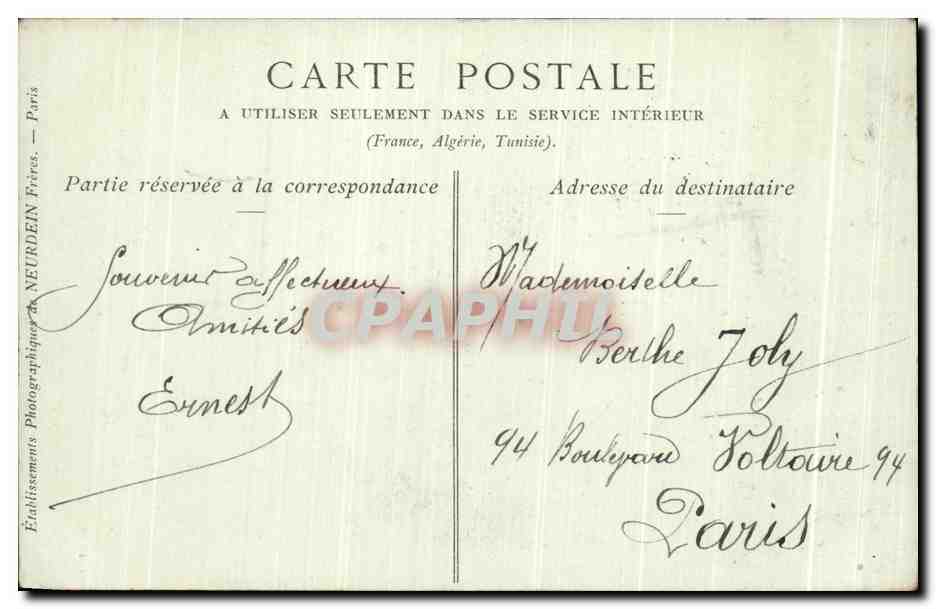 CARTE POSTALE
A UTILISER SEULEMENT DANS LE SERVICE INTÉRIEUR
(France, Algérie, Tunisie).
Partie réservée à la correspondance
Souvenir affectueux.
Amitiés
Ernest
Adresse du destinataire
Mademoiselle
Berthe Joly
94 Boulevard Voltaire 94
Paris
Établissements Photographiques de NEURDEIN Frères. — Paris
CPAPHIL